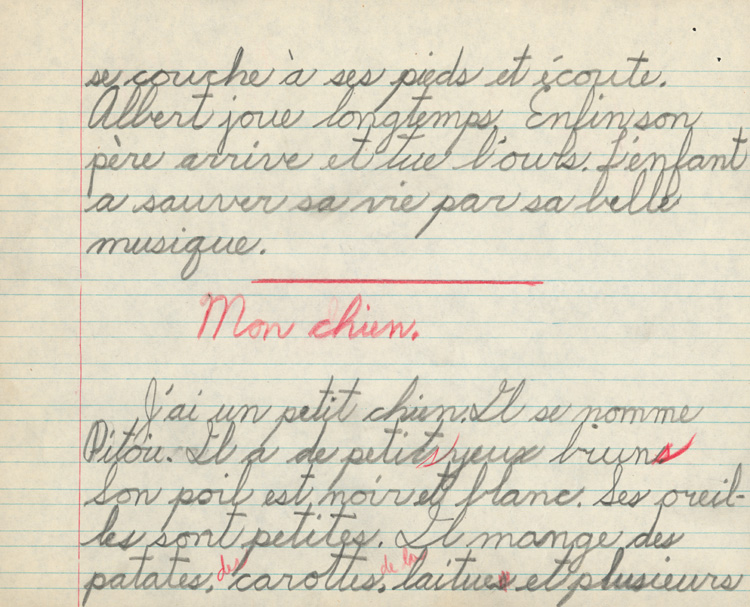 se couche à ses pieds et écoute.
Albert joue longtemps. Enfin son
père arrive et tue l'ours. L'enfant
a sauver sa vie par sa belle
musique.
Mon chien.
J'ai un petit chien. Il se nomme
Pitou. Il a de petits yeux bruns
Son poil est noir et blanc. Ses oreil-
les sont petites. Il mange des
patates, des carottes, de la laitue et plusieurs